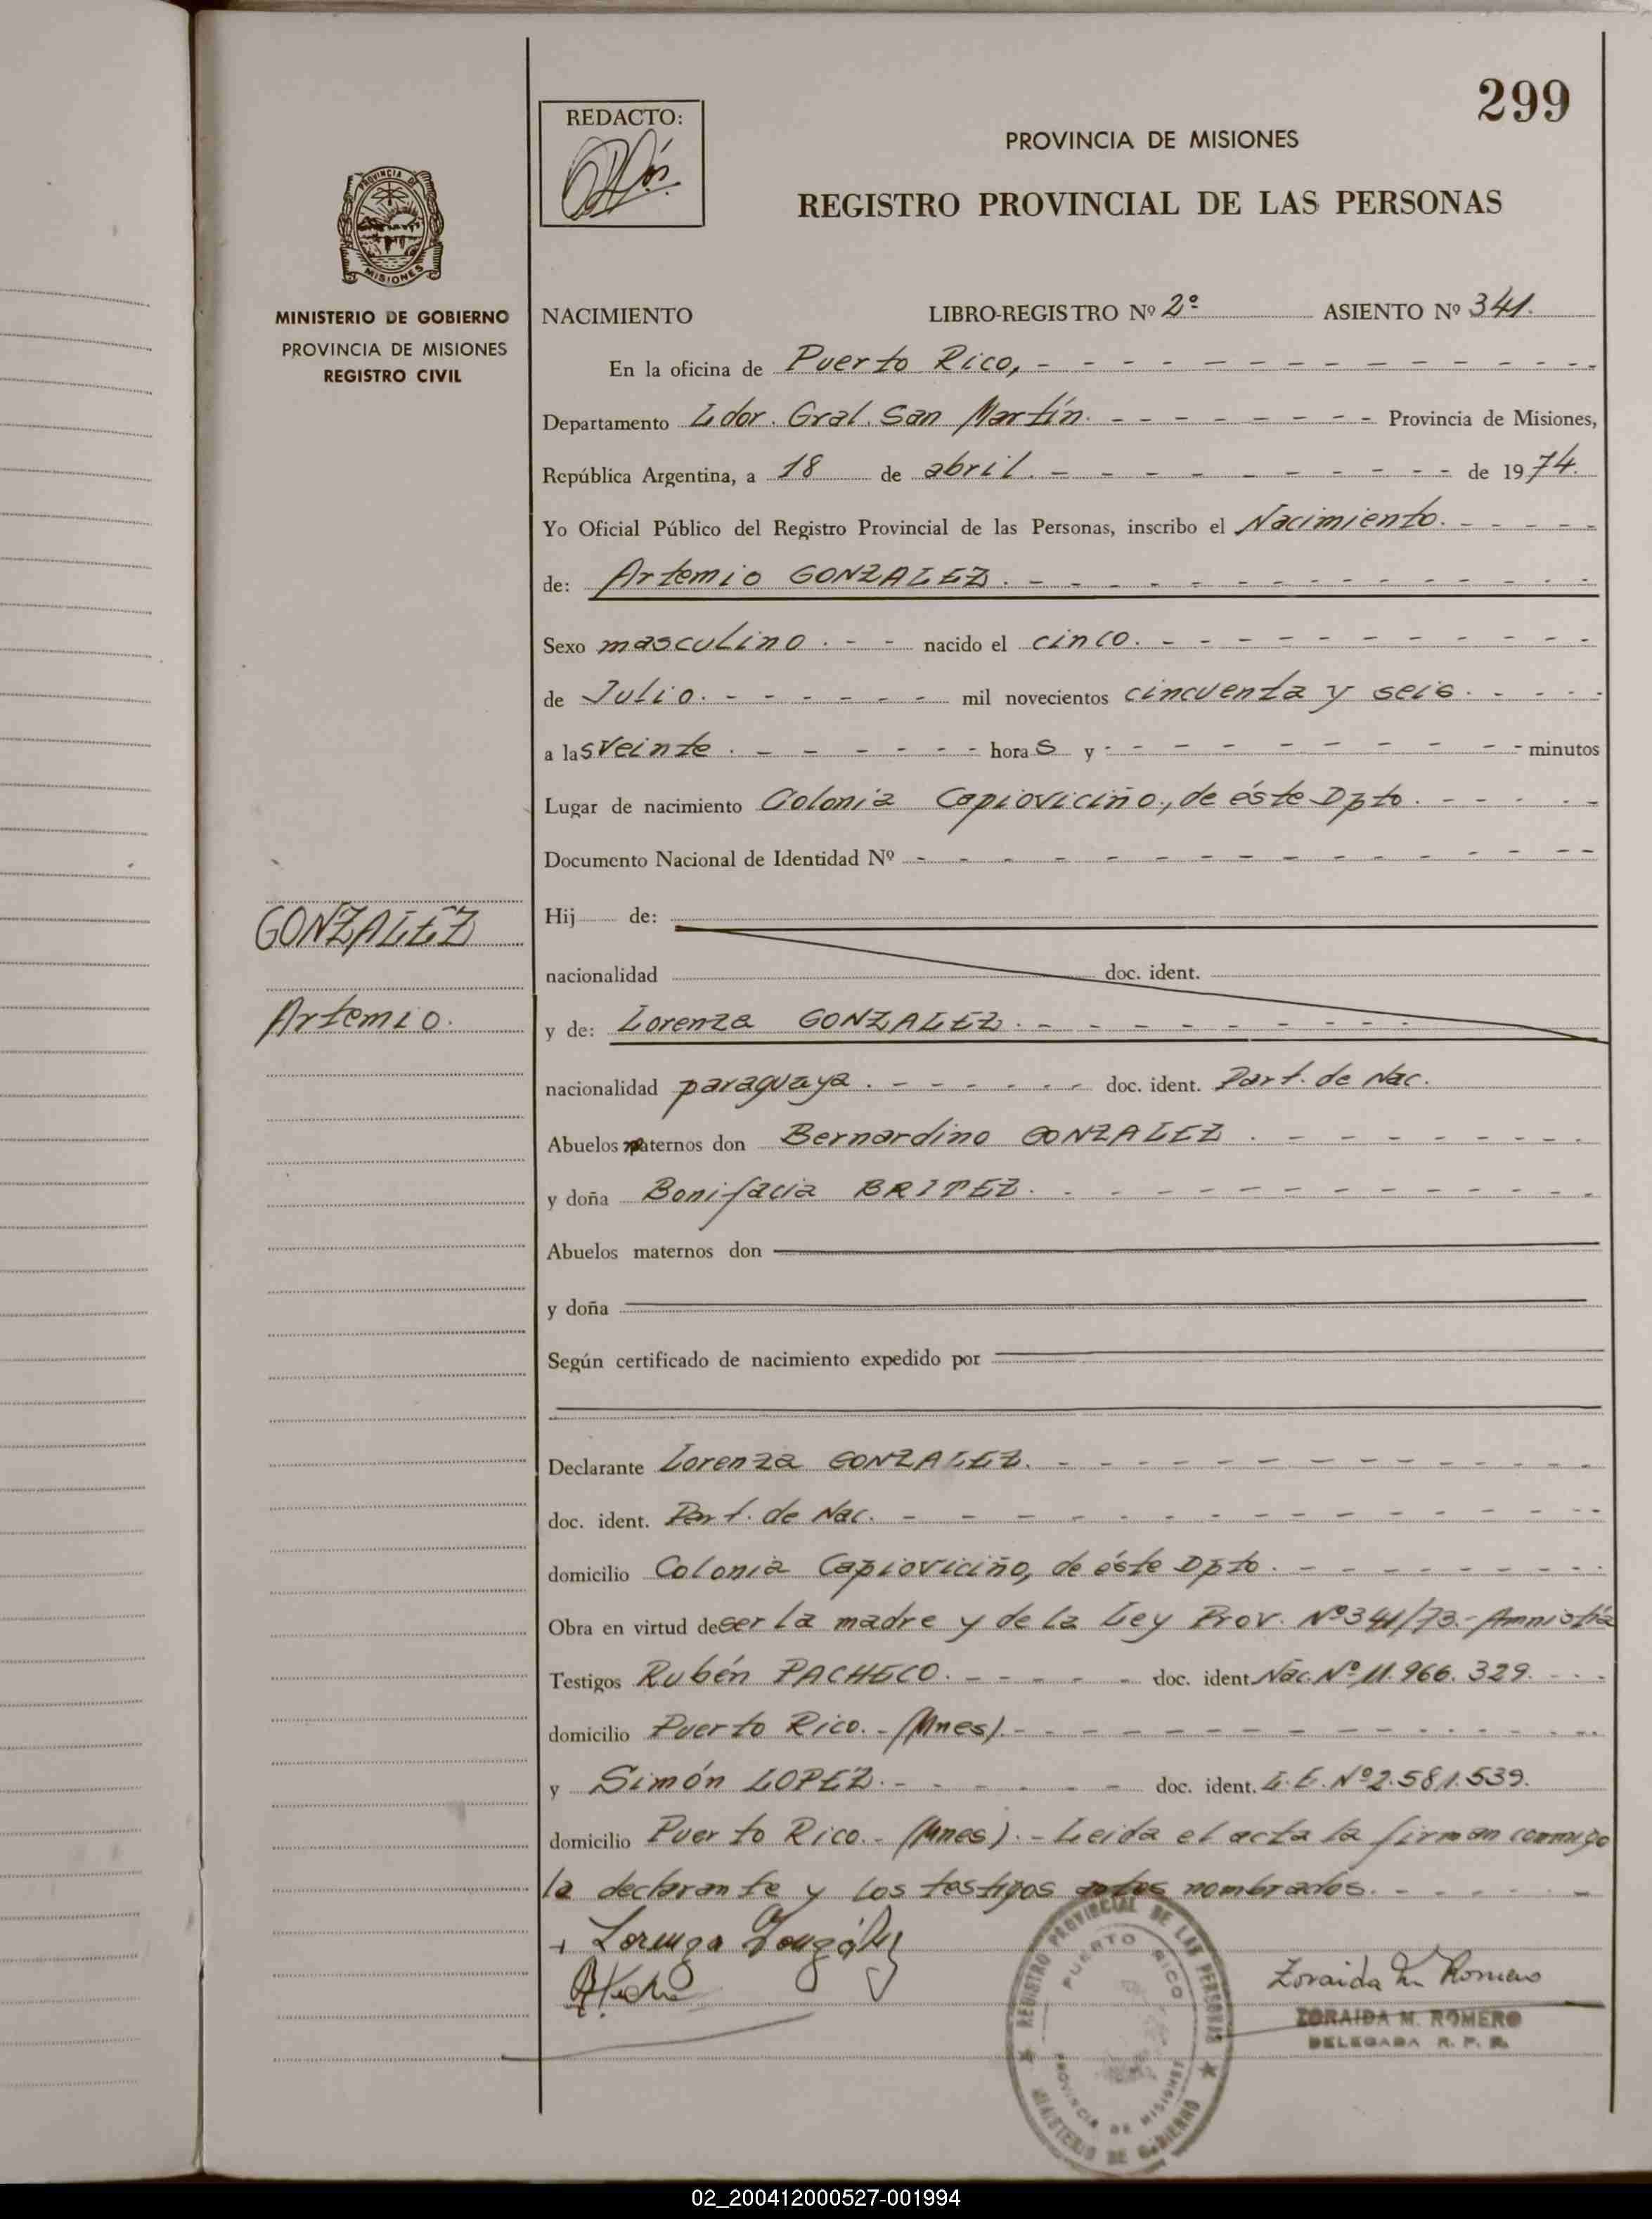 299
REDACTO:
PROVINCIA DE MISIONES
REGISTRO PROVINCIAL DE LAS PERSONAS
PROVINCIA DE
MISIONES
MINISTERIO DE GOBIERNO
PROVINCIA DE MISIONES
REGISTRO CIVIL
NACIMIENTO LIBRO-REGISTRO Nº 2º ASIENTO Nº 341.
En la oficina de Puerto Rico, - - - - - - - - - - - - -
Departamento Ldor. Gral. San Martín. - - - - - - - - Provincia de Misiones,
República Argentina, a 18 de abril. - - - - - - - - - de 1974.
Yo Oficial Público del Registro Provincial de las Personas, inscribo el Nacimiento. - - - -
de: Artemio GONZALEZ. - - - - - - - - - - - - -
Sexo masculino. - - nacido el cinco. - - - - - - - - - - -
de Julio. - - - - - - mil novecientos cincuenta y seis. - - - -
a las veinte. - - - - - - horas y - - - - - - - - - - minutos
Lugar de nacimiento Colonia Capioviciño, de éste Dpto. - - - - -
Documento Nacional de Identidad Nº - - - - - - - - - - - - - -
GONZALEZ
Artemio.
Hij de:
nacionalidad doc. ident.
y de: Lorenza GONZALEZ. - - - - - - - - -
nacionalidad paraguaya. - - - - - - doc. ident. Part. de Nac.
Abuelos maternos don Bernardino GONZALEZ. - - - - - - - -
y doña Bonifacia BRITEZ. - - - - - - - - - - - -
Abuelos maternos don
y doña
Según certificado de nacimiento expedido por
Declarante Lorenza GONZALEZ. - - - - - - - - - - - - -
doc. ident. Part. de Nac. - - - - - - - - - - - - - -
domicilio Colonia Capioviciño, de éste Dpto. - - - - - - - -
Obra en virtud de ser la madre y de la Ley Prov. Nº 341/73.- Amnistía
Testigos Rubén PACHECO. - - - - - doc. ident. Nac. Nº 11.966.329. - - -
domicilio Puerto Rico.- (Mnes). - - - - - - - - - - - - -
y Simón LOPEZ. - - - - - - doc. ident. L.E. Nº 2.581.539.
domicilio Puerto Rico.- (Mnes).- Leida el acta la firman conmigo
la declarante y los testigos antes nombrados. - - - - -
+ Lorenza González
Zoraida M. Romero
ZORAIDA M. ROMERO
DELEGADA R. P. P.
REGISTRO PROVINCIAL DE LAS PERSONAS
PUERTO RICO
PROVINCIA DE MISIONES
MINISTERIO DE GOBIERNO
02_200412000527-001994